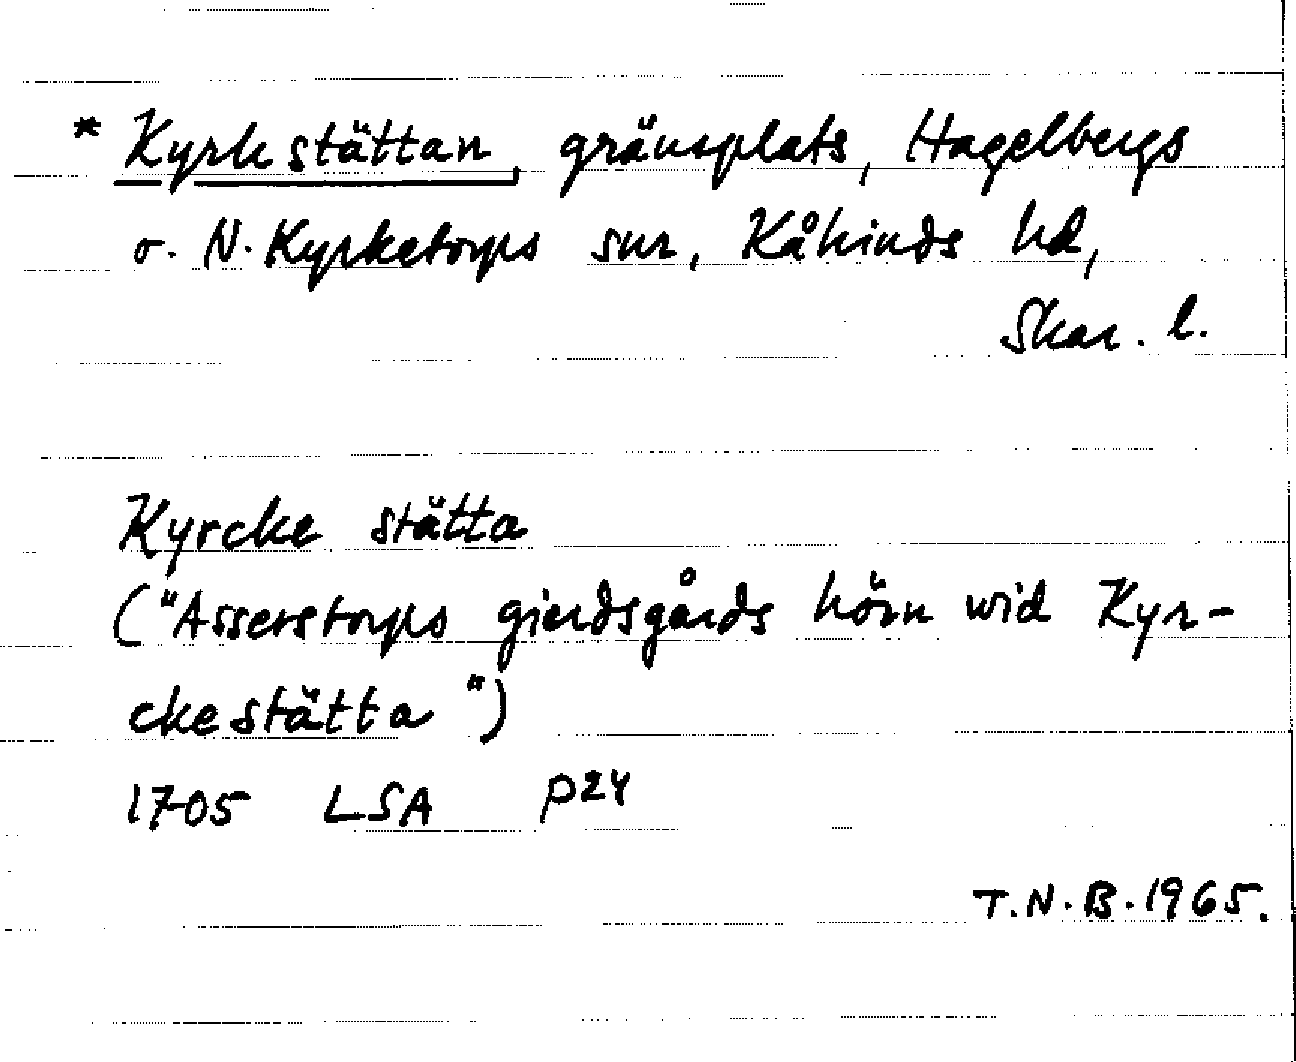 * Kyrkstättan, gränsplats, Hagelbergs
o. N. Kyrketorps snr, Kåkinds hd,
Skar. l.
Kyrcke stätta
("Asserstorps gierdsgårds hörn wid Kyr-
ckestätta")
1705 LSA P24
T.N.B. 1965.